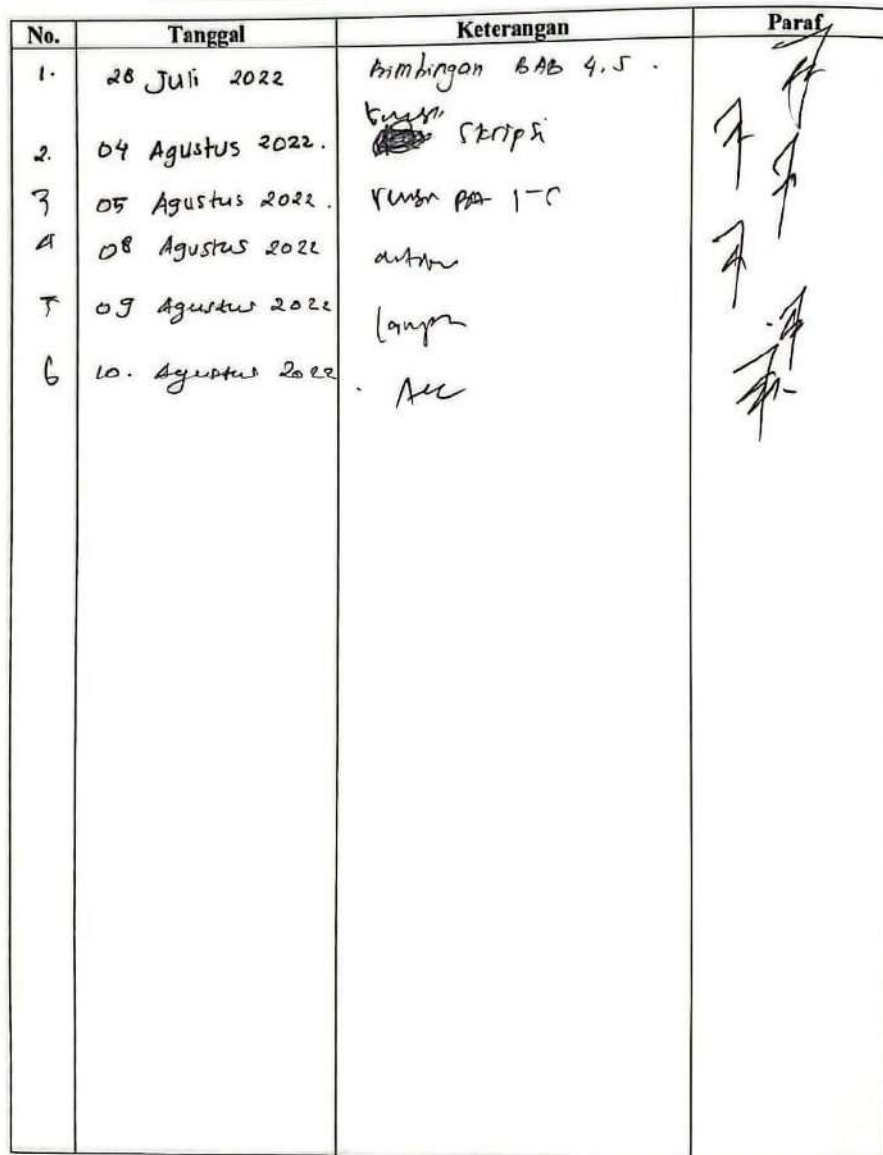 No. Tanggal Keterangan Paraf
1. 28 Juli 2022 Bimbingan BAB 4.5.
2. 04 Agustus 2022. Skripsi
3 05 Agustus 2022. 1-5
4 08 Agustus 2022
5 09 Agustus 2022
6 10. Agustus 2022. Acc